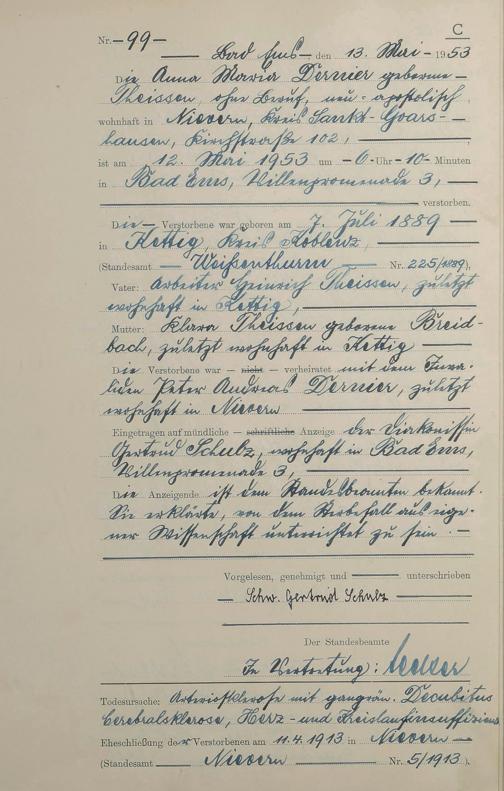 C
Nr. -99-
Bad Ems, den 13. Mai 1953
Die Anna Maria Dernier geborene
Theissen, ohne Beruf, neu-apostolisch
wohnhaft in Nievern, Kreis Sankt-Goars-
hausen, Kirchstraße 102,
ist am 12. Mai 1953 um -0- Uhr -10- Minuten
in Bad Ems, Villenpromenade 3,
verstorben.
Die Verstorbene war geboren am 7. Juli 1889
in Kettig, Kreis Koblenz
(Standesamt Weißenthurm Nr. 225/1889),
Vater: Arbeiter Heinrich Theissen, zuletzt
wohnhaft in Kettig,
Mutter: Klara Theissen geborene Breid-
bach, zuletzt wohnhaft in Kettig
Die Verstorbene war – nicht – verheiratet mit dem Inva-
liden Peter Andreas Dernier, zuletzt
wohnhaft in Nievern
Eingetragen auf mündliche – schriftliche Anzeige der Diakonissin
Gertrud Schulz, wohnhaft in Bad Ems,
Villenpromenade 3,
Die Anzeigende ist dem Standesbeamten bekannt.
Sie erklärte, von dem Sterbefall aus eige-
ner Wissenschaft unterrichtet zu sein.
Vorgelesen, genehmigt und unterschrieben
Schw. Gertrud Schulz
Der Standesbeamte
In Vertretung:
Todesursache: Arteriosklerose mit gangrän. Decubitus
Cerebralsklerose, Herz- und Kreislaufinsuffizienz
Eheschließung der Verstorbenen am 11.4.1913 in Nievern
(Standesamt Nievern Nr. 5/1913).